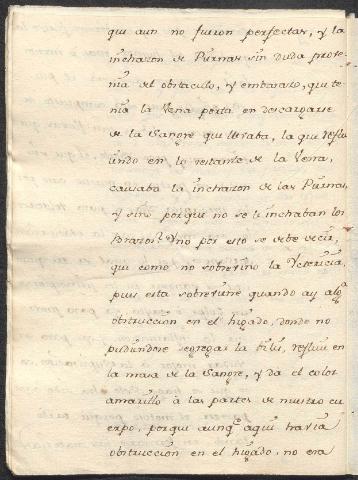 que aun no fueron perfectas, y la
inchazon de Piernas sin duda prove-
nia del obstaculo, y embarazo, que te-
nia la Vena porta en descargarse
de la Sangre que llevaba, la que reflu
iendo en lo restante de la Vena,
causaba la inchazon de las Piernas,
y sino porque no se le inchaban los
Brazos? Y no por esto se debe decir,
que como no sobrevino la Ictericia,
pues esta sobreviene quando ay alg.ª
obstruccion en el higado, donde no
pudiendose segregar la bilis, refluie en
la masa de la Sangre, y da el color
amarillo à las partes de nuestro cu
erpo, porque aunq.e aqui havia
obstruccion en el higado, no era